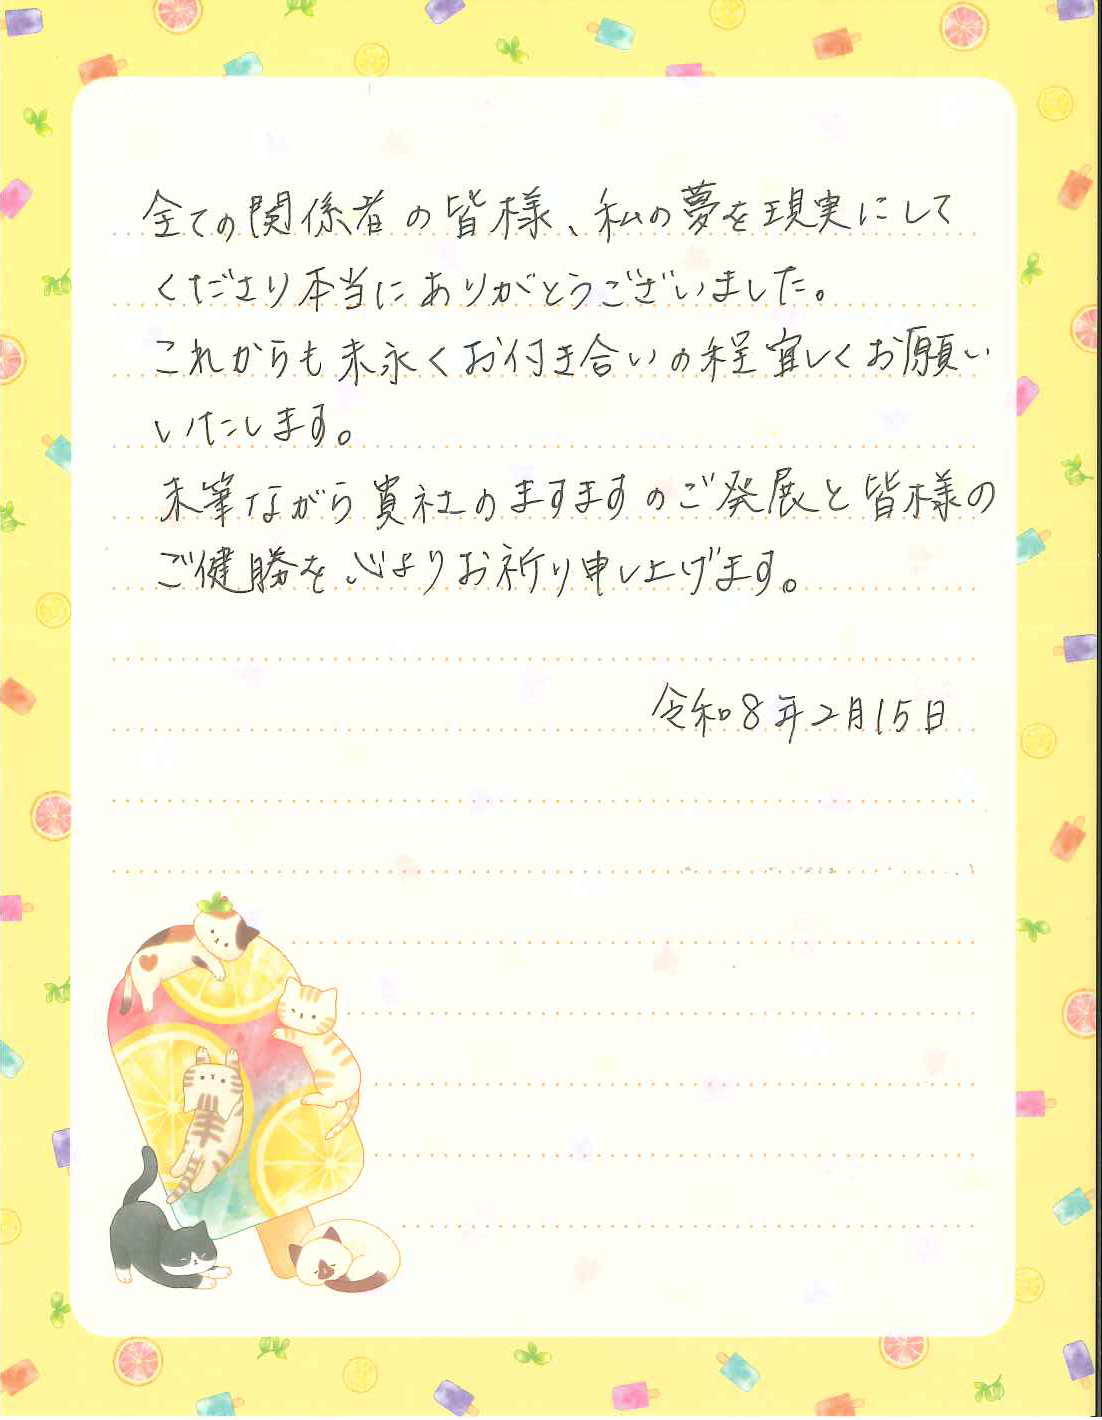 全ての関係者の皆様、私の夢を現実にして
くださり本当にありがとうございました。
これからも末永くお付き合いの程宜しくお願い
いたします。
末筆ながら貴社のますますのご発展と皆様の
ご健勝を心よりお祈り申し上げます。
令和8年2月15日